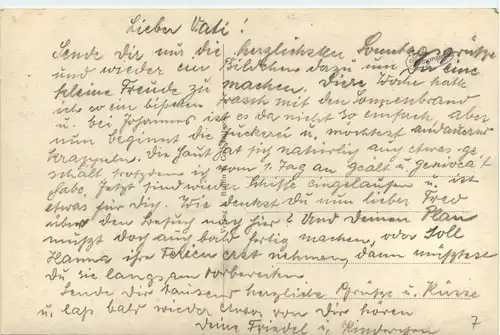 Lieber Vati!
Sende Dir nur die herzlichsten Sonntagsgrüße
und wieder ein Bildchen dazu um Dir eine
kleine Freude zu machen. Diese Woche hatte
ich so ein bißchen mit den Sonnenbrand
u. bei Johannes ist es da nicht so einfach, aber
nun beginnt die Juckerei u. möchtest andauernd
krappeln. Die Haut hat sich natürlich auch etwas ge
schält trotzdem ich vom 1. Tag an geölt u.
habe. Jetzt sind wieder Schiffe eingelaufen u. ist
etwas für Dich. Wie denkst Du nun lieber Fred
über den Besuch nach hier? Und Deinen Plan
müßt doch auch bald fertig machen, oder soll
Hanna ihre Ferien erst nehmen, dann müßtest
Du sie langsam vorbereiten
Sende Dir tausend herzliche Grüße u. Küsse
u. laß bald wieder etwas von Dir hören
Deine Friedel u. Kinderchen
7